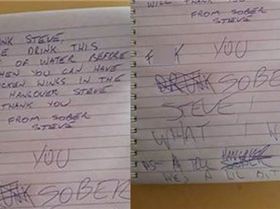 NK STEVE,
E DRINK THIS
OF WATER BEFORE
HEN YOU CAN HAVE
CKEN WINGS IN THE
HANGOVER STEVE
THANK YOU
FROM SOBER
STEVE
YOU
DRUNK SOBER
WILL THANK YOU
FROM SOBER
STEVE
F K YOU
DRUNK SOBER
STEVE!
WHAT I
A
HE'S A LIL BIT